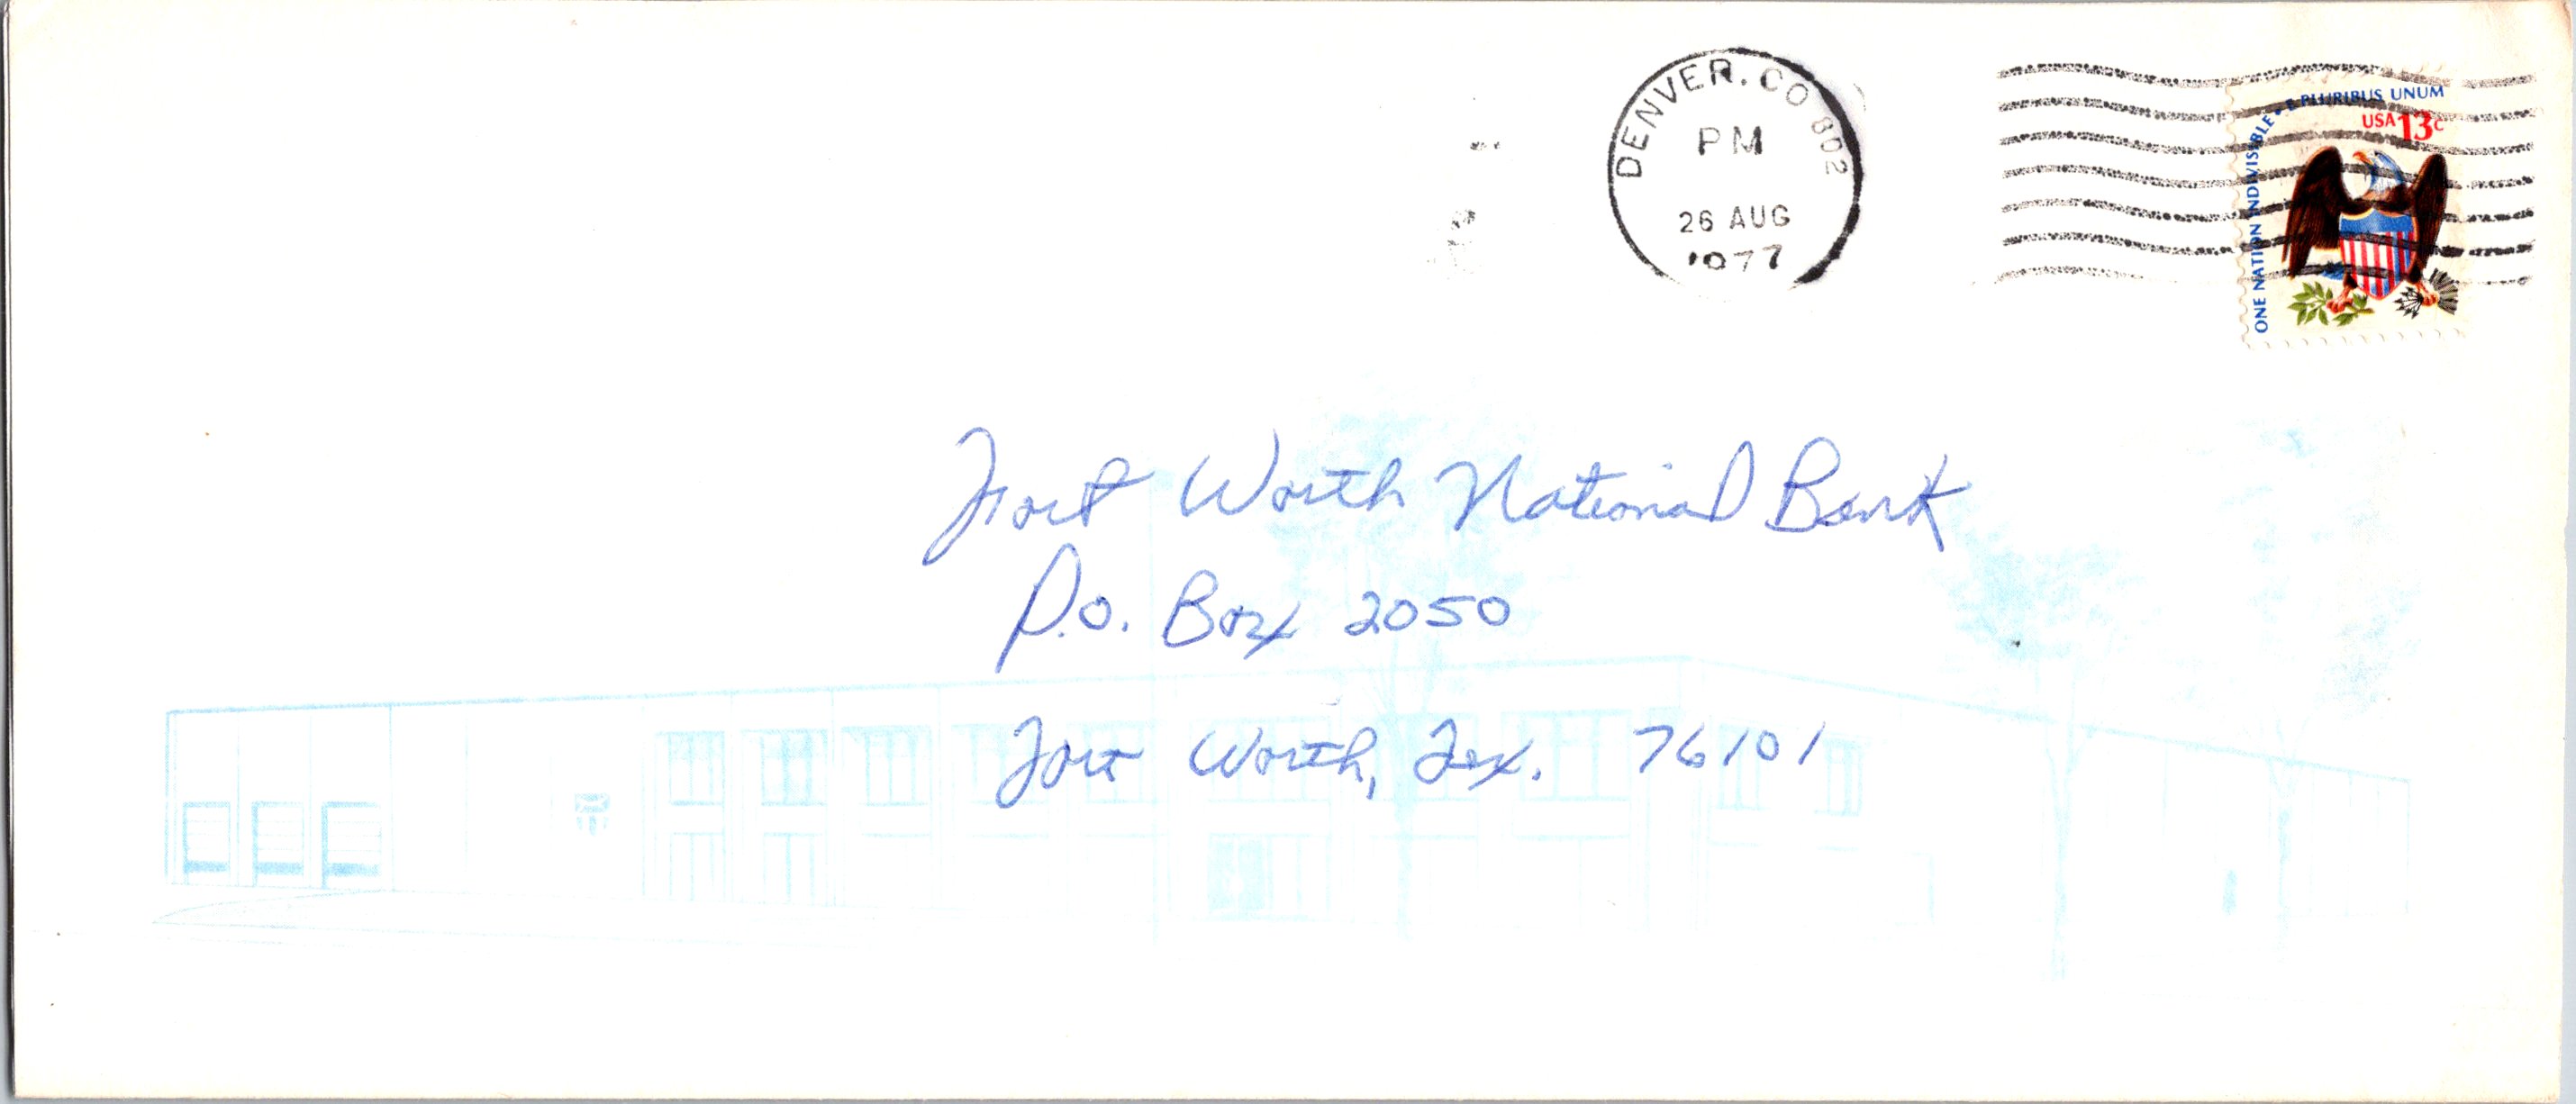 DENVER, CO 802
PM
26 AUG
1977
ONE NATION INDIVISIBLE • E PLURIBUS UNUM
USA 13c
Fort Worth National Bank
P.O. Box 2050
Fort Worth, Tex. 76101